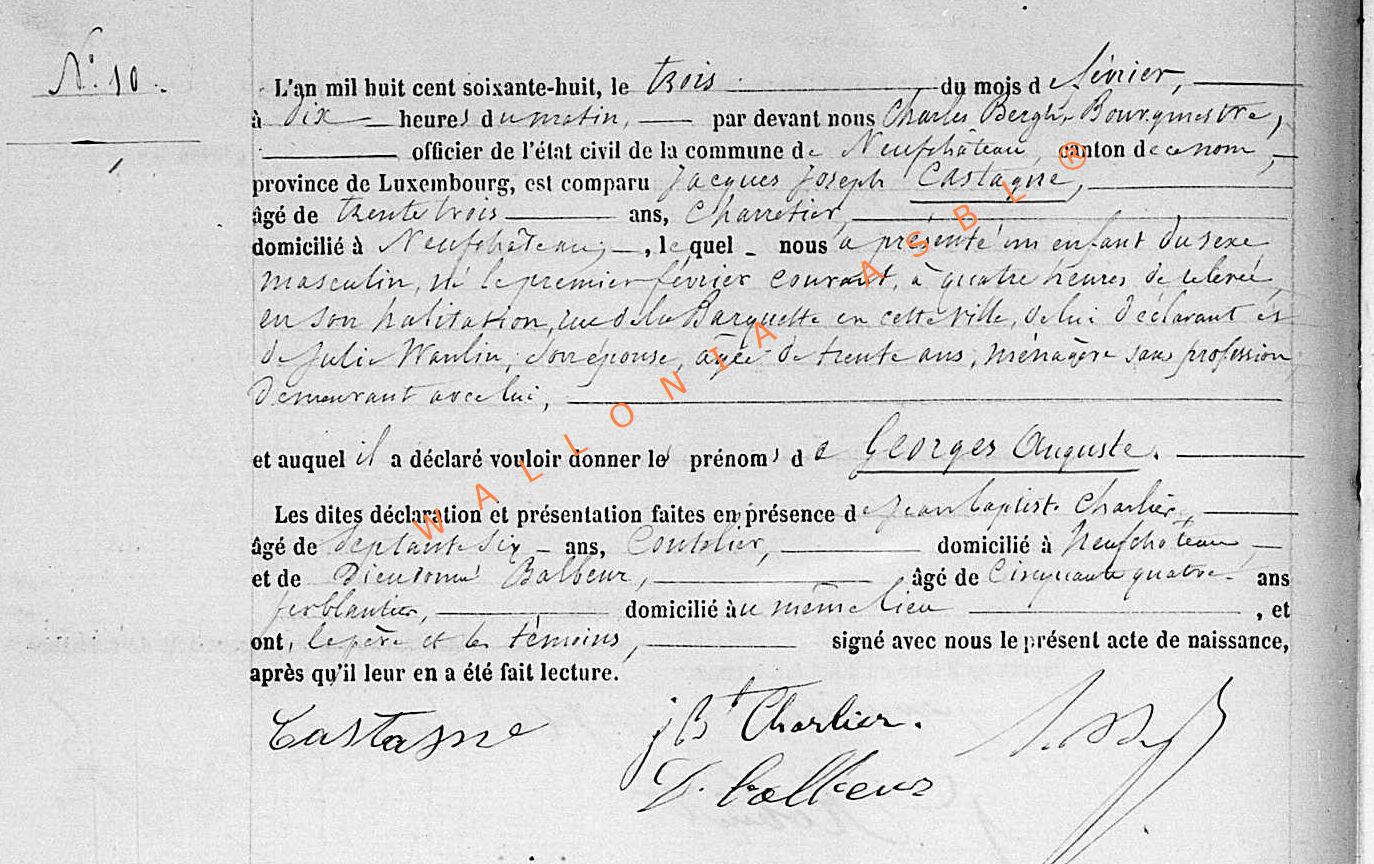 N° 10.
L'an mil huit cent soixante-huit, le trois du mois de février,
à dix heures du matin, par devant nous Charles Bergh, Bourgmestre,
officier de l'état civil de la commune de Neufchâteau, canton de ce nom,
province de Luxembourg, est comparu Jacques Joseph Castagne,
âgé de trente trois ans, Charretier,
domicilié à Neufchâteau, lequel nous a présenté un enfant du sexe
masculin, né le premier février courant, à quatre heures de relevée,
en son habitation, rue de la Barquette en cette ville, de lui déclarant et
de Julie Wanlin, son épouse, âgée de trente ans, ménagère sans profession
demeurant avec lui,
et auquel il a déclaré vouloir donner les prénoms de Georges Auguste.
Les dites déclaration et présentation faites en présence de Jean Baptiste Charlier,
âgé de septante six ans, Coutelier, domicilié à Neufchâteau,
et de Dieudonné Balbeur, âgé de cinquante quatre ans
ferblantier, domicilié au même lieu, et
ont, le père et les témoins, signé avec nous le présent acte de naissance,
après qu'il leur en a été fait lecture.
Castagne JBt Charlier.
D. Balbeur
WALLONIA ASBL ®